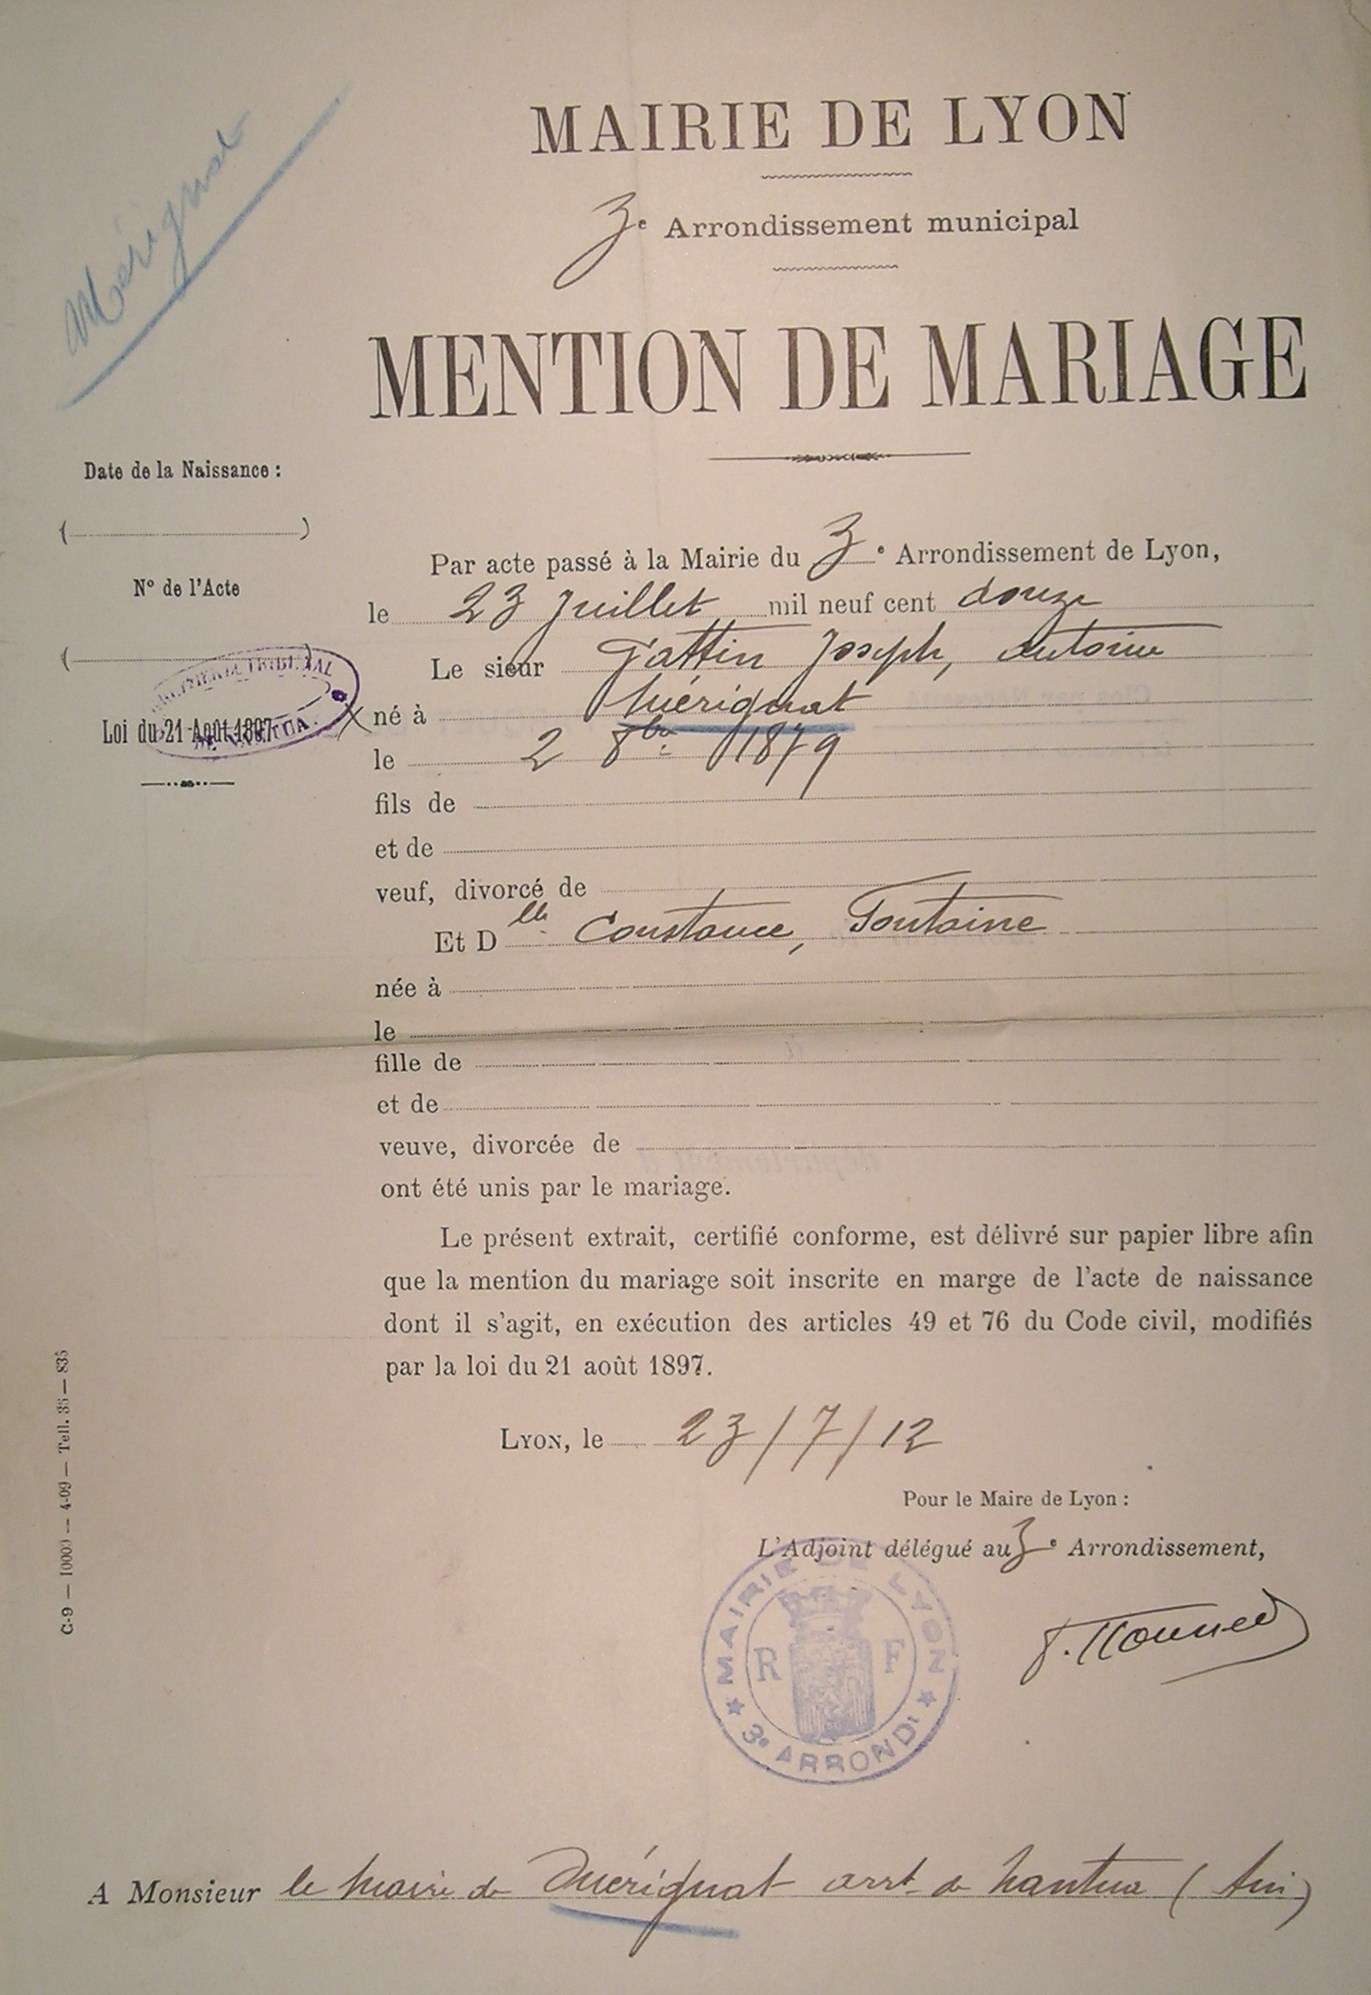 Mérignat
MAIRIE DE LYON
3e Arrondissement municipal
MENTION DE MARIAGE
Date de la Naissance :
(                    )
N° de l'Acte
(                    )
TRIBUNAL
Loi du 21 Août 1897
Par acte passé à la Mairie du 3e Arrondissement de Lyon,
le 23 Juillet mil neuf cent douze
Le sieur Joseph, Antoine
né à Mérignat
le 2 8bre 1879
fils de
et de
veuf, divorcé de
Et Dlle Constance, Fontaine
née à
le
fille de
et de
veuve, divorcée de
ont été unis par le mariage.
Le présent extrait, certifié conforme, est délivré sur papier libre afin
que la mention du mariage soit inscrite en marge de l'acte de naissance
dont il s'agit, en exécution des articles 49 et 76 du Code civil, modifiés
par la loi du 21 août 1897.
Lyon, le 23/7/12
Pour le Maire de Lyon :
L'Adjoint délégué au 3e Arrondissement,
MAIRIE DE LYON
R F
3e ARRONDt
A Monsieur le Maire de Mérignat arrt de Nantua (Ain)
C-9 — 10000 — 4-09 — Tell. 35 — 835